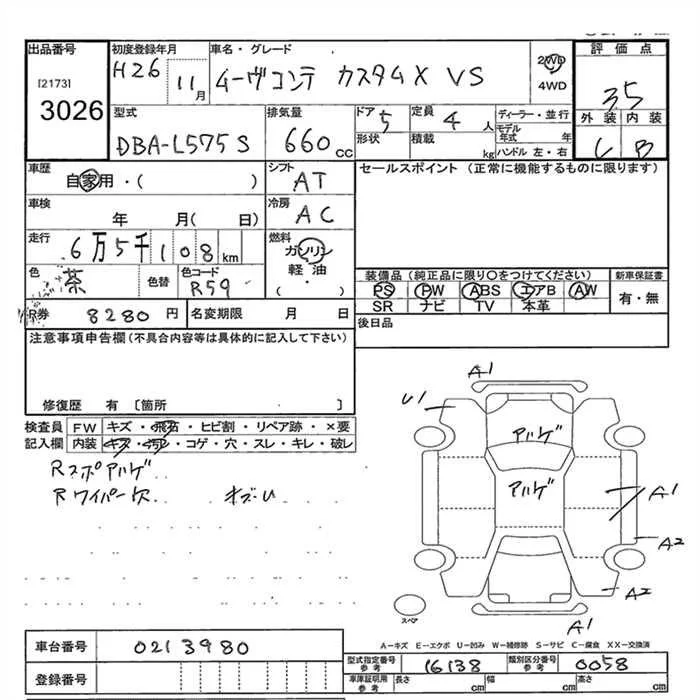 出品番号 初度登録年月 車名・グレード 評価点
[2173] H26 11月 ムーヴコンテ カスタムX VS 2WD 4WD 35
3026 外装 内装
型式 排気量 ドア 5 定員 4人 ディーラー・並行
DBA-L575S 660cc 形状 積載 kg モデル年式 年 C B
ハンドル 左・右
車歴 自家用・( ) シフト AT セールスポイント (正常に機能するものに限ります)
車検 年 月( 日) 冷房 AC
走行 6万5千108km 燃料 ガソリン
軽油
・
( )
色 茶 色替 色コード R59
装備品(純正品に限り○をつけてください) 新車保証書
PS PW ABS エアB AW 有・無
SR ナビ TV 本革
R券 8280円 名変期限 月 日 後日品
注意事項申告欄(不具合内容等は具体的に記入して下さい)
修復歴 有 〔箇所 〕
検査員 FW キズ・飛石・ヒビ割・リペア跡・×要
記入欄 内装 キズ・汚れ・コゲ・穴・スレ・キレ・破レ
Rスポアルゲ
Rワイパー欠
A1
U1
アルゲ
アルゲ
A1
A2
A2
A1
スペア
A-キズ E-エクボ U-凹み W-補修跡 S-サビ C-腐食 XX-交換済
車台番号 0213980
登録番号
型式指定番号 参考 16138 類別区分番号 参考 0058
車庫証明用 参考 長さ cm 幅 cm 高さ cm